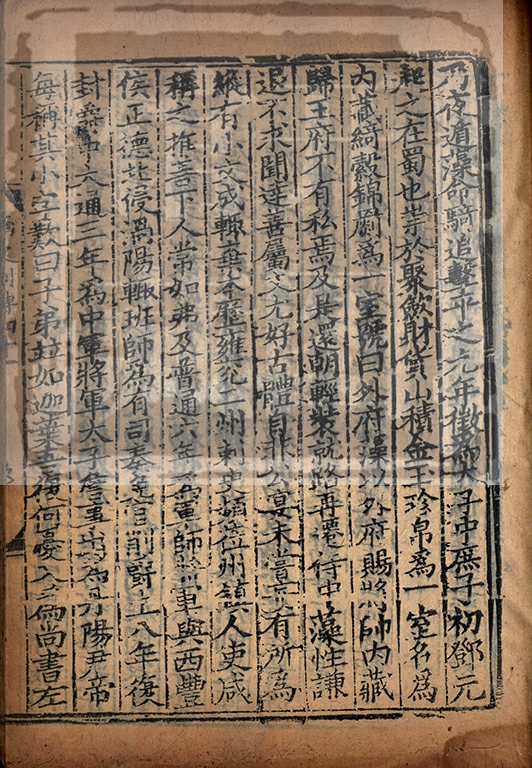 乃夜遁藻命騎追擊平之九年徵為太子中庶子初鄧元
起之在蜀也崇於聚斂財貨山積金玉珍帛為一室名為
內藏綺縠錦罽為一室號曰外府藻以外府賜將帥內藏
歸王府不有私焉及是還朝輕裝就路再遷侍中藻性謙
退不求聞達善屬文尤好古體自非公宴未嘗妄有所為
縱有小文成輒棄本歷雍兖二州刺史頻莅州鎮人吏咸
稱之推善下人常如弗及普通六年為軍師將軍與西豐
侯正德北侵渦陽輒班師為有司奏免官削爵土八年復
封爵中大通三年為中軍將軍太子詹事出為丹陽尹帝
每稱其小字歎曰子弟並如迦葉吾復何憂入為尚書左